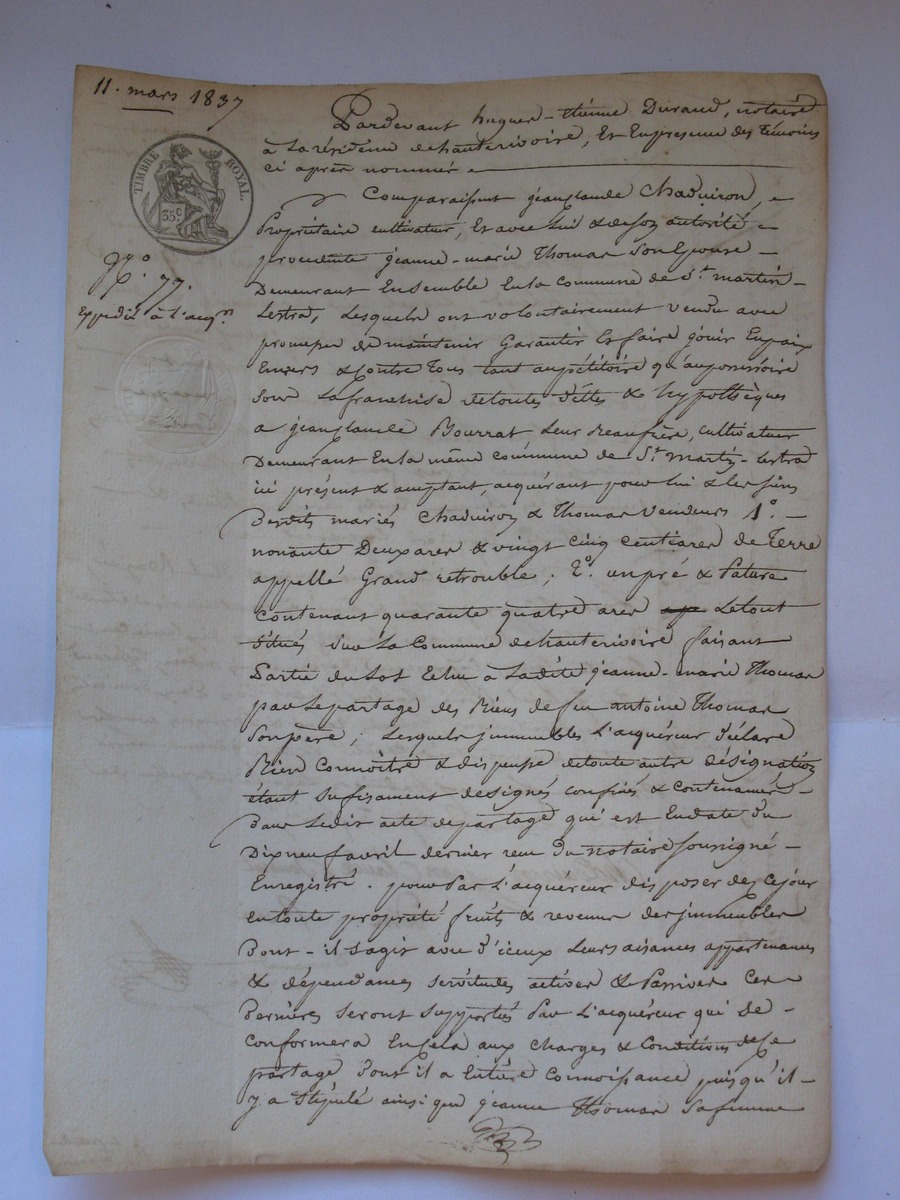 11. mars 1837
TIMBRE ROYAL.
35c
No. 77.
Expédié à l'acqr.
Pardevant hugues-étienne Durand, notaire
à La résidence dehauterivoire, Et Enpresence des témoins
ci après nommés
Comparaissent jeanclaude Chaduiron,
Propriétaire cultivateur, Et avec lui & deson autorité
procedente jeanne-marie Thomas Son Epouse
Demeurant Ensemble Enla commune de St. martin
Lestra, Lesquels ont volontairement vendu avec
promesse de maintenir Garantir Et faire jouir Enpaix
Envers & Contre Tous tant aupétitoire qu'aupossessoire
Sous Lafranchise detoutes dettes & hypothèques
a jeanclaude Bourrat Leur Beaufrère, cultivateur
Demeurant Enla même commune de St. martin-Lestra
ici présent & acceptant, acquérant pour lui & les siens
Desdits mariés Chaduiron & Thomas vendeurs 1o.
nonante Deux ares & vingt cinq centiares de Terre
appellé Grand retrouble; 2o. unpré & Pature
Contenant quarante quatre ares Letout
Situés Sur La Commune dehauterivoire faisant
Partie du Lot Echu à Ladite jeanne-marie Thomas
par Lepartage des Biens defeu antoine Thomas
Sonpère; Lesquels jmmeubles L'acquéreur déclare
Bien Connoitre & dispense detoute autre désignation
étant sufisament designés confinés & contenancés
Dans Ledit acte departage qui est Endate du
Dixneuf avril dernier recu Du notaire soussigné
Enregistré. pour Par L'acquéreur disposer des cejour
entoute propriété fruits & revenus des jmmeubles
Dont-il sagit avec d'iceux Leurs aisances appartenances
& dépendances servitudes actives & Passives Ces
Dernières seront supportés Par L'acquéreur qui se
conformera Encela aux charges & Conditions dese
partage Dont il a Entière Connoissance puisqu'il
y a Stipulé ainsi que jeanne Thomas Safemme